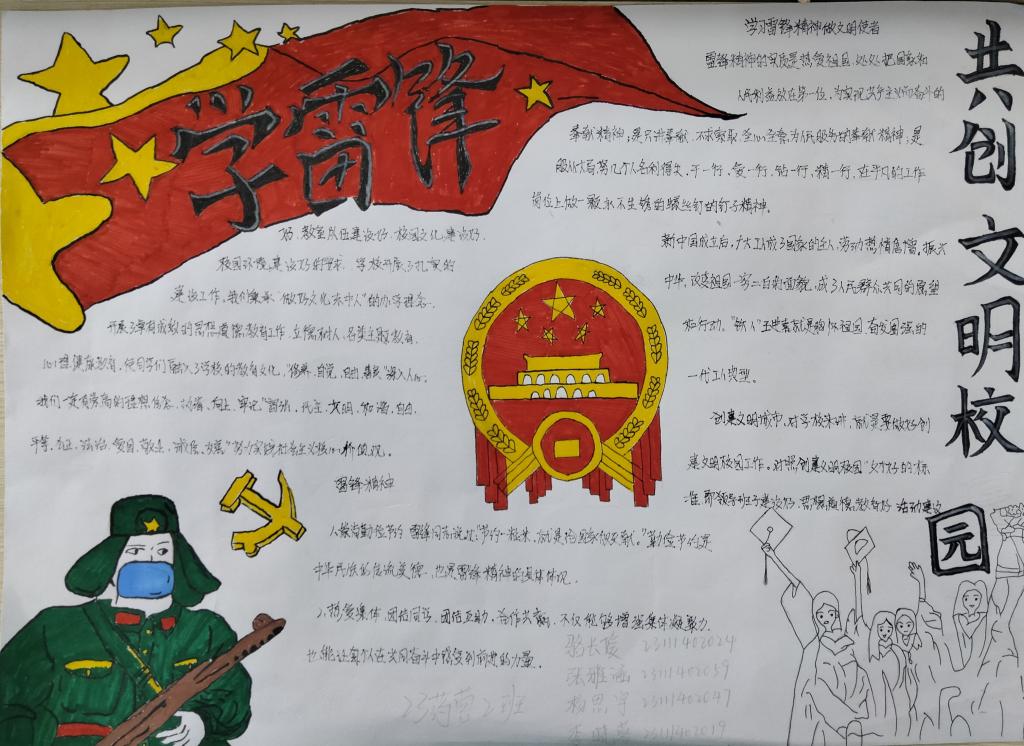 学雷锋
共创文明校园
学习雷锋精神做文明使者
雷锋精神的实质是热爱祖国,处处把国家和
人民利益放在第一位,为实现共产主义而奋斗的
奉献精神,是只讲奉献、不求索取、全心全意为人民服务的奉献精神,是
服从大局,不计个人名利得失,干一行,爱一行,钻一行,精一行,在平凡的工作
岗位上做一颗永不生锈的螺丝钉的钉子精神。
新中国成立后,广大工人成了国家的主人,劳动热情高涨,振兴
中华、改变祖国一穷二白的面貌,成了人民群众共同的愿望
和行动。"铁人"王进喜就是胸怀祖国、奋发图强的
一代工人典型。
创建文明城市,对学校来讲,就是要做好创
建文明校园工作。对照创建文明校园"六个好"的标
准,即领导班子建设好、思想道德教育好、活动建设
好、教室队伍建设好、校园文化建设好、
校园环境建设好的要求,学校开展了扎实的
建设工作,我们秉承"做好文化 水中人"的办学理念,
开展了卓有成效的思想道德教育工作,立德树人,各类主题教育、
心理健康教育,使同学们融入了学校的教育文化,"修养、自觉、自由、奉献"深入人心。
我们一定有崇高的理想信念,拼搏、向上,牢记"富强、民主、文明、和谐、自由、
平等、公正、法治、爱国、敬业、诚信、友善"努力实践社会主义核心价值观。
雷锋精神
1.崇尚勤俭节约 雷锋同志说过:"节约一粒米,就是给国家做贡献。"勤俭节约是
中华民族的传统美德,也是雷锋精神的具体体现。
2.热爱集体、团结同学 团结互助,合作共赢,不仅能够增强集体凝聚力,
也能让每个人在共同奋斗中感受到前进的力量。
23药营2班
骆长媛 23111402024
张雅涵 23111402059
杨思宇 23111402047
李晓燕 23111402019